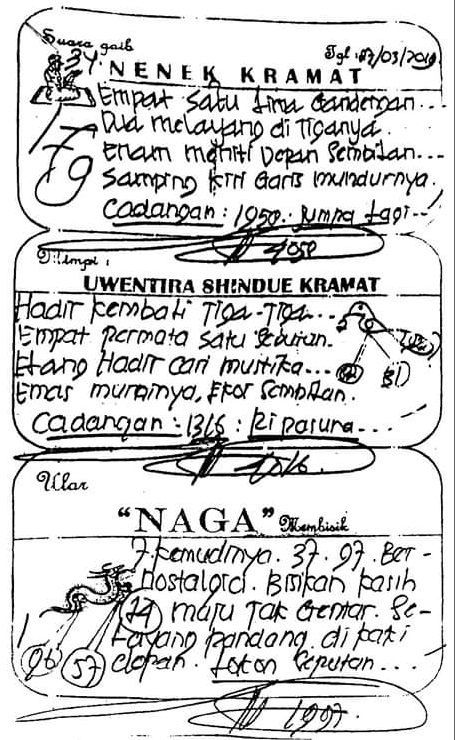 Suara gaib
Tgl: 03/03/2019
34.
NENEK KRAMAT
Empat Satu Lima Gandengan...
Dua melayang di Tiganya.
Enam meniti Depan Sembilan...
Samping kiri Garis mundurnya.
179
Cadangan: 1950. Jumpa lagi--
4050
UWENTIRA SHINDUE KRAMAT
Hadir kembali Tiga-Tiga...
Empat permata satu sebutan.
Elang Hadir cari mustika...
Emas murninya, Ekor Sembilan.
31
Cadangan: 1316:
Ular
"NAGA" Membisik
7 kemudinya. 37. 97. Ber-
Nostalgia. Bisikan kasih
74 maju Tak Gentar. Se-
Layang pandang di kaki
delapan. seputan...
96
57
1997.